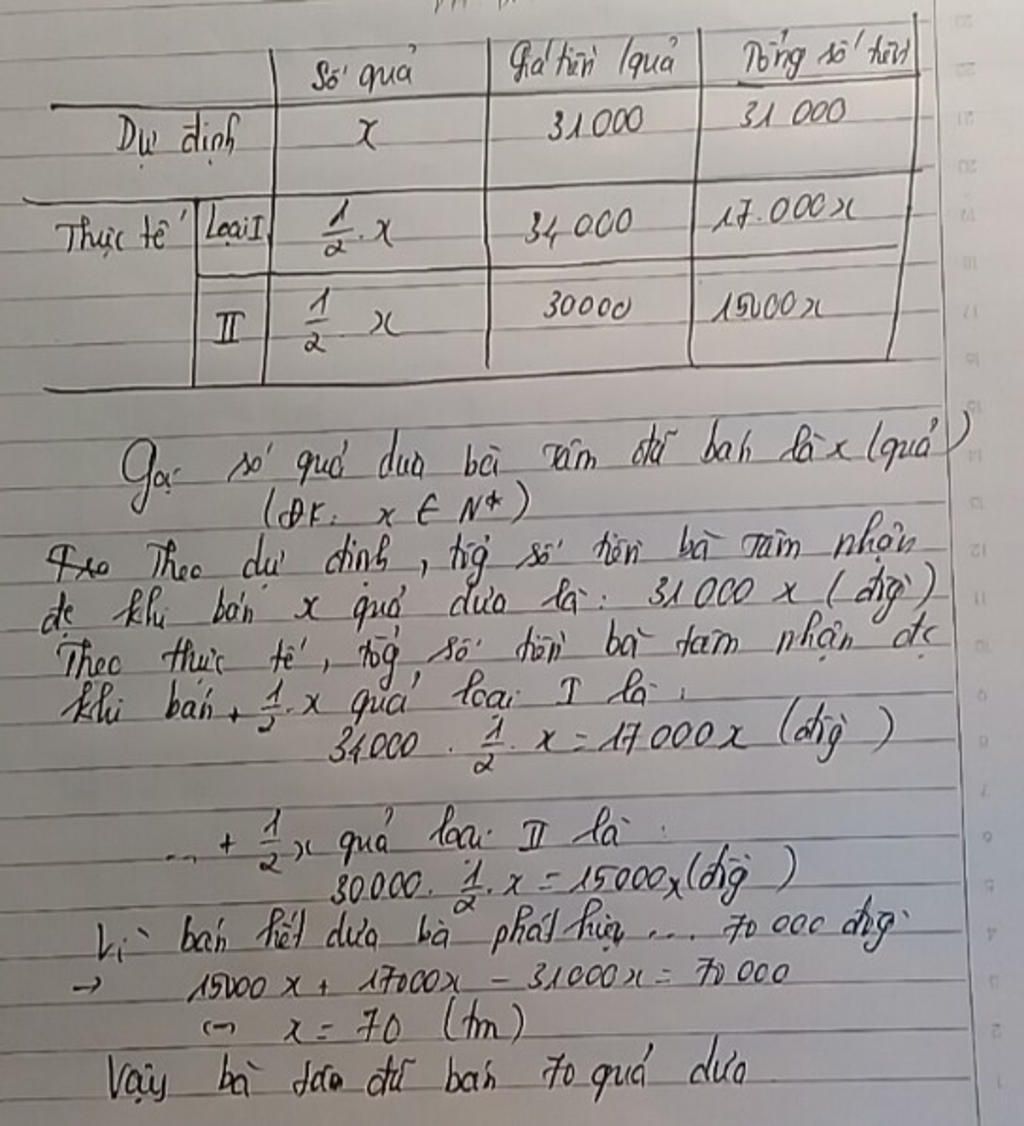 Số quả Giá tiền /quả Tổng số tiền
Dự định x 31000 31 000
Thực tế Loại I 1/2 . x 34 000 17.000x
II 1/2 x 30000 15000x
Gọi số quả dưa bà Tâm đã bán là x (quả)
(ĐK: x ∈ N*)
Theo dự định, tổg số tiền bà Tâm nhận
đc khi bán x quả dưa là: 31000 x (đồg)
Theo thực tế, tổg số tiền bà tâm nhận đc
khi bán + 1/2 . x quả loại I là :
34000 . 1/2 . x = 17000x (đồg)
... + 1/2 x quả loại II là :
30000. 1/2 . x = 15000x (đồg)
Vì bán hết dưa bà phát hiện ... 70 000 đồg
→ 15000 x + 17000x - 31000x = 70 000
↔ x = 70 (tm)
Vậy bà đã bán 70 quả dưa